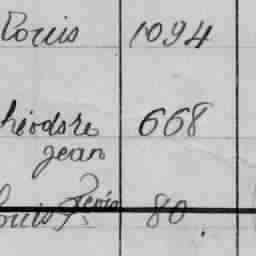 Louis 1094
héodore 668
Jean
Louis 80